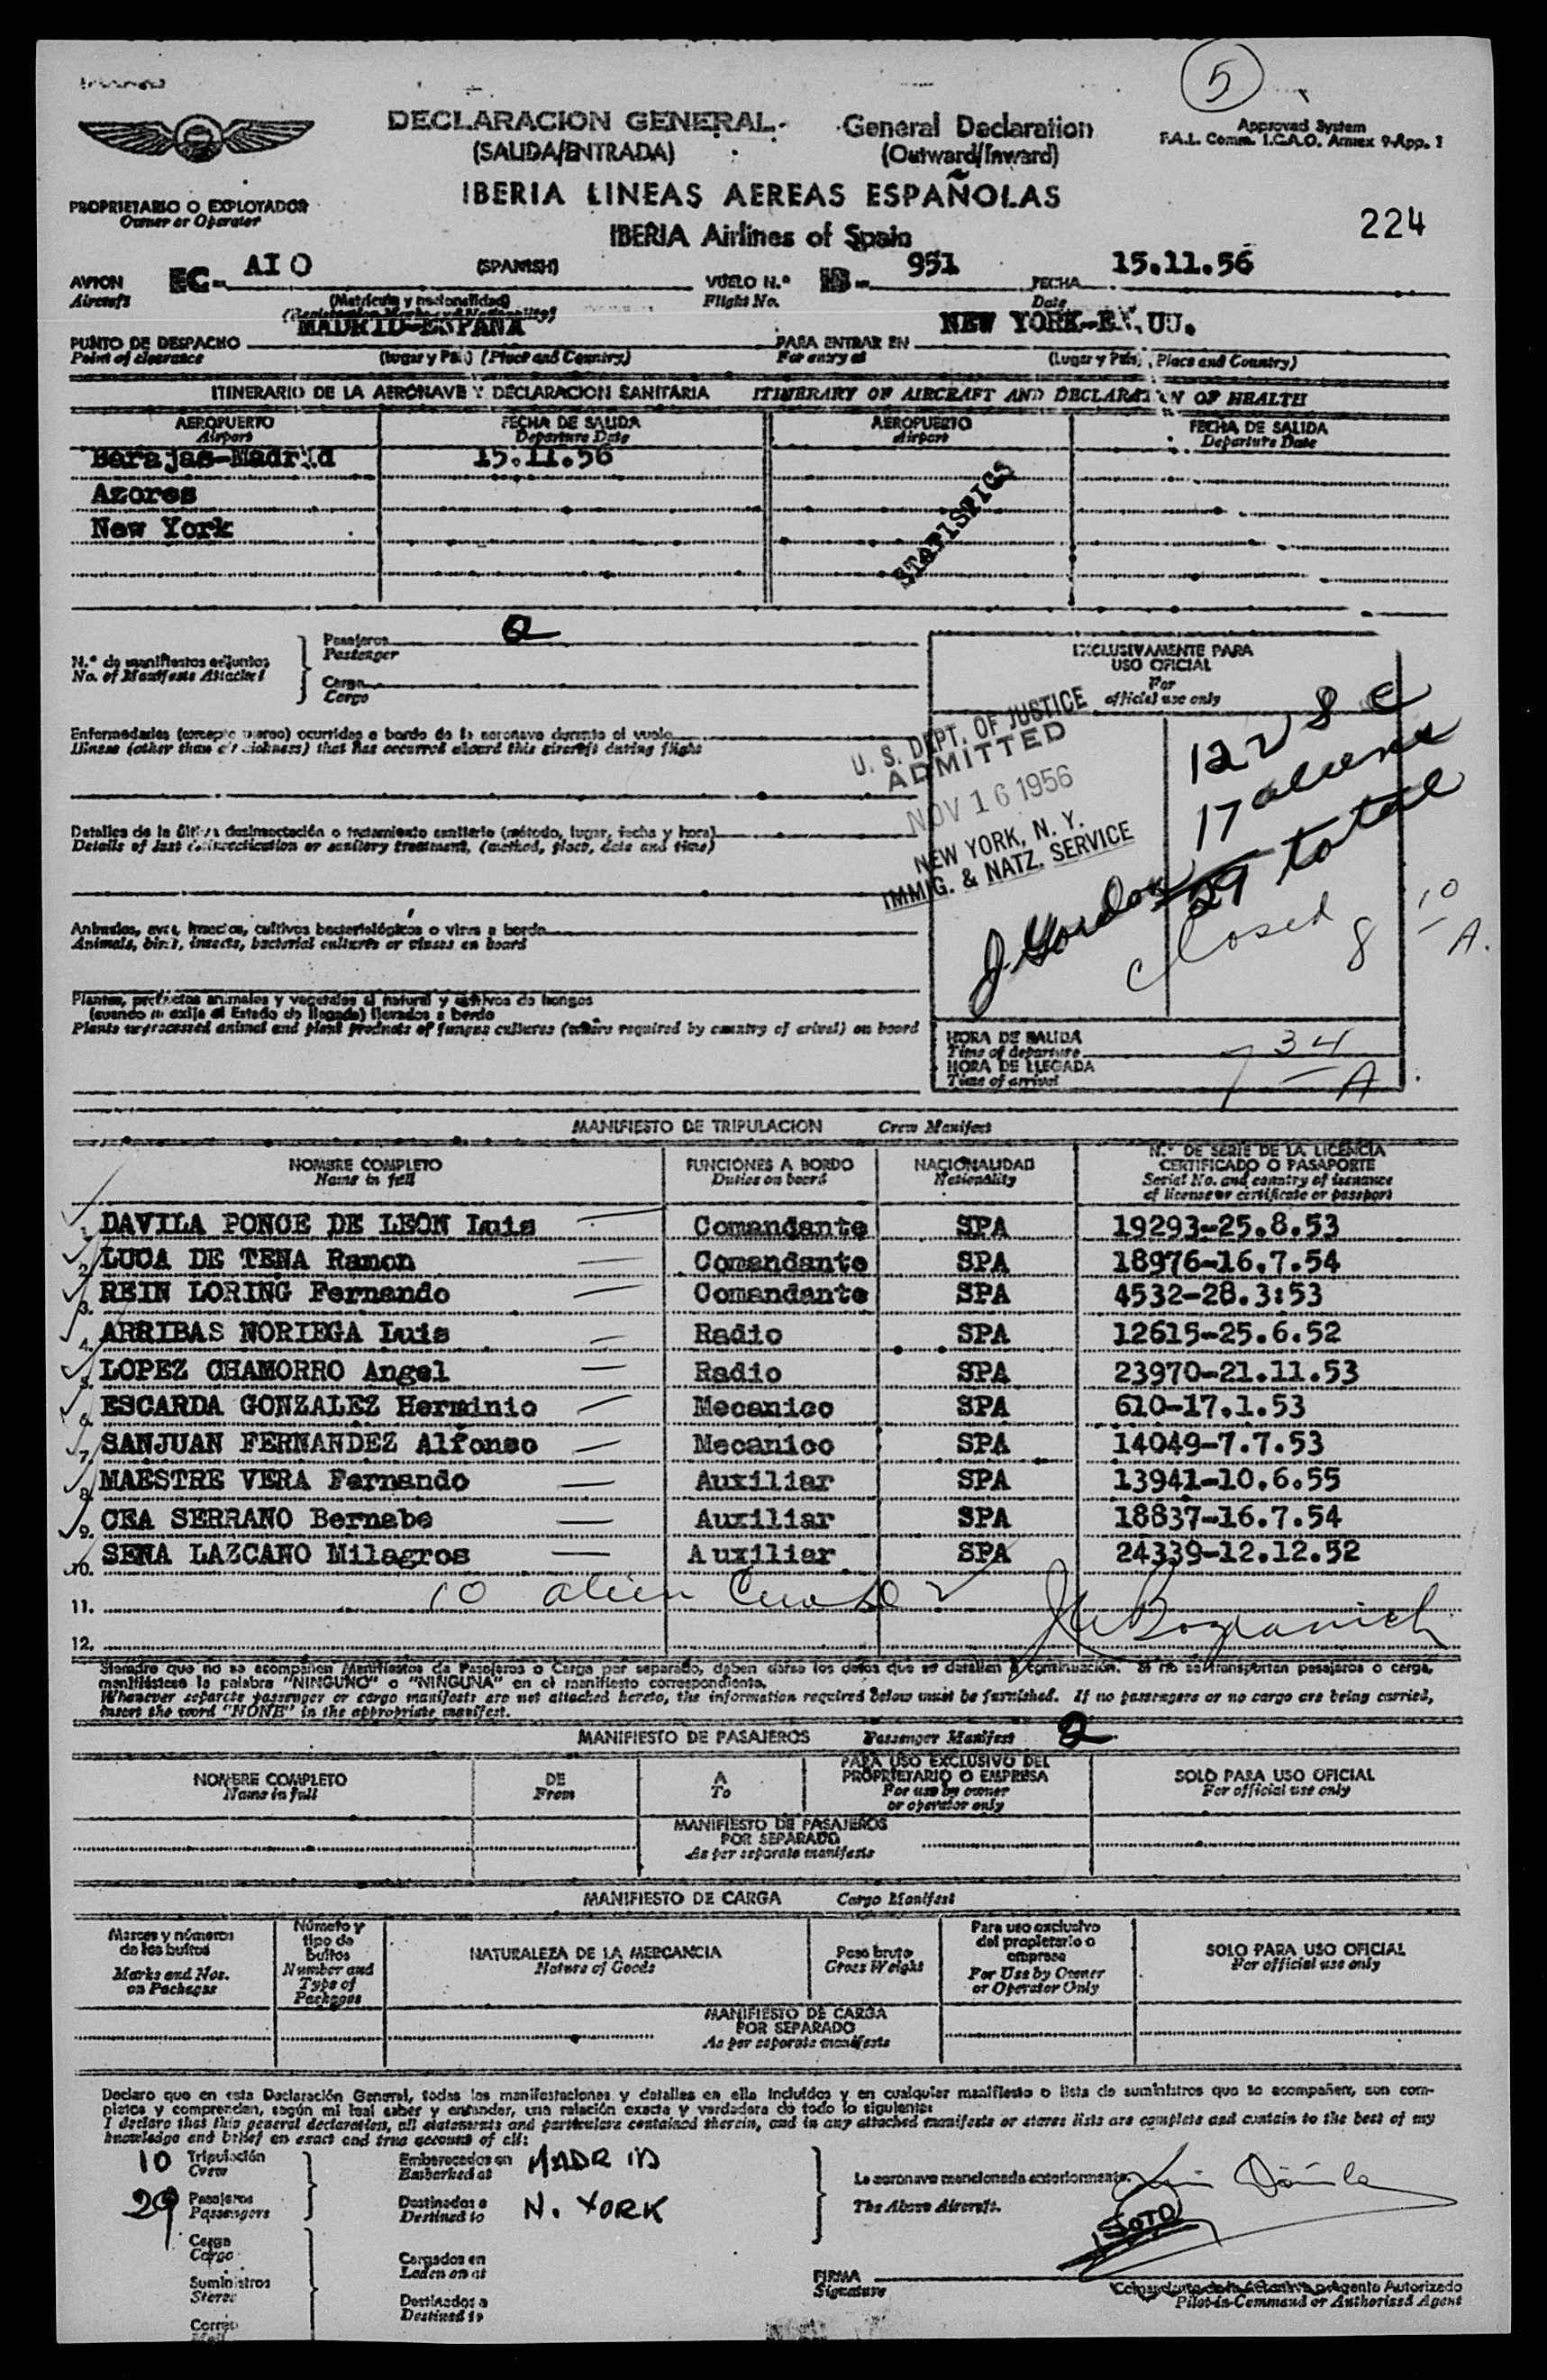 5
DECLARACION GENERAL- General Declaration
(SALIDA/ENTRADA) (Outward/Inward)
Approved System
F.A.L. Comm. I.C.A.O. Annex 9-App. 1
IBERIA LINEAS AEREAS ESPAÑOLAS
IBERIA Airlines of Spain
224
PROPRIETARIO O EXPLOTADOR
Owner or Operator
AVION EC- AIO (SPANISH) VUELO N.º IB- 951 FECHA 15.11.56
Aircraft (Matrícula y nacionalidad) Flight No. Date
(Registration Marks and Nationality)
PUNTO DE DESPACHO MADRID-ESPAÑA PARA ENTRAR EN NEW YORK-EE.UU.
Point of clearance (Lugar y País) (Place and Country) For entry at (Lugar y País) (Place and Country)
ITINERARIO DE LA AERONAVE Y DECLARACION SANITARIA ITINERARY OF AIRCRAFT AND DECLARATION OF HEALTH
AEROPUERTO FECHA DE SALIDA AEROPUERTO FECHA DE SALIDA
Airport Departure Date Airport Departure Date
Barajas-Madrid 15.11.56
Azores
New York
STATISTICS
N.º de manifiestos adjuntos
No. of Manifests Attached
Pasajeros 2
Passenger
Carga
Cargo
EXCLUSIVAMENTE PARA
USO OFICIAL
For
official use only
Enfermedades (excepto mareo) ocurridas a bordo de la aeronave durante el vuelo
Illness (other than air sickness) that has occurred aboard this aircraft during flight
U. S. DEPT. OF JUSTICE
ADMITTED
NOV 16 1956
NEW YORK, N. Y.
IMMIG. & NATZ. SERVICE
12 USC
17 aliens
29 total
J. Gordon
Closed 8 10 A.
Detalles de la última desinsectación o tratamiento sanitario (método, lugar, fecha y hora)
Details of last disinsectication or sanitary treatment, (method, place, date and time)
Animales, aves, insectos, cultivos bacteriológicos o virus a bordo
Animals, birds, insects, bacterial cultures or viruses on board
Plantas, productos animales y vegetales al natural y cultivos de hongos
(cuando lo exija el Estado de llegada) llevados a bordo
Plants unprocessed animal and plant products of fungus cultures (where required by country of arival) on board
HORA DE SALIDA
Time of departure
HORA DE LLEGADA
Time of arrival
7 34 A
MANIFIESTO DE TRIPULACION Crew Manifest
NOMBRE COMPLETO FUNCIONES A BORDO NACIONALIDAD N.º DE SERIE DE LA LICENCIA
Name in full Duties on board Nationality CERTIFICADO O PASAPORTE
Serial No. and country of issuance
of license or certificate or passport
1. DAVILA PONCE DE LEON Luis Comandante SPA 19293-25.8.53
2. LUCA DE TENA Ramon Comandante SPA 18976-16.7.54
3. REIN LORING Fernando Comandante SPA 4532-28.3:53
4. ARRIBAS NORIEGA Luis Radio SPA 12615-25.6.52
5. LOPEZ CHAMORRO Angel Radio SPA 23970-21.11.53
6. ESCARDA GONZALEZ Herminio Mecanico SPA 610-17.1.53
7. SANJUAN FERNANDEZ Alfonso Mecanico SPA 14049-7.7.53
8. MAESTRE VERA Fernando Auxiliar SPA 13941-10.6.55
9. CEA SERRANO Bernabe Auxiliar SPA 18837-16.7.54
10. SENA LAZCANO Milagros Auxiliar SPA 24339-12.12.52
11. 10 alien Crew
12.
Siempre que no se acompañen Manifiestos de Pasajeros o Carga por separado, deben darse los datos que se detallan a continuación. Si no se transportan pasajeros o carga,
manifiéstese la palabra "NINGUNO" o "NINGUNA" en el manifiesto correspondiente.
Whenever separate passenger or cargo manifests are not attached hereto, the information required below must be furnished. If no passengers or no cargo are being carried,
insert the word "NONE" in the appropriate manifest.
MANIFIESTO DE PASAJEROS Passenger Manifest 2
NOMBRE COMPLETO DE A PARA USO EXCLUSIVO DEL SOLO PARA USO OFICIAL
Name in full From To PROPRIETARIO O EMPRESA For official use only
For use by owner
or operator only
MANIFIESTO DE PASAJEROS
POR SEPARADO
As per separate manifests
MANIFIESTO DE CARGA Cargo Manifest
Marcas y números
de los bultos
Marks and Nos.
on Packages
Número y
tipo de
bultos
Number and
Type of
Packages
NATURALEZA DE LA MERCANCIA
Nature of Goods
Peso bruto
Gross Weight
Para uso exclusivo
del propietario o
empresa
For Use by Owner
or Operator Only
SOLO PARA USO OFICIAL
For official use only
MANIFIESTO DE CARGA
POR SEPARADO
As per separate manifests
Declaro que en esta Declaración General, todas las manifestaciones y detalles en ella incluídos y en cualquier manifiesto o lista de suministros que se acompañen, son com-
pletos y comprenden, según mi leal saber y entender, una relación exacta y verdadera de todo lo siguiente:
I declare that this general declaration, all statements and particulars contained therein, and in any attached manifests or stores lists are complete and contain to the best of my
knowledge and belief an exact and true account of all:
10 Tripulación Embarcados en MADRID
Crew Embarked at
29 Pasajeros Destinados a N. YORK
Passengers Destined to
La aeronave mencionada anteriormente.
The Above Aircraft.
Luis Dávila
SOTO
Carga
Cargo
Suministros
Stores
Correo
Mail
Cargados en
Laden on at
Destinados a
Destined to
FIRMA
Signature
Comandante de la Aeronave o Agente Autorizado
Pilot-in-Command or Authorized Agent